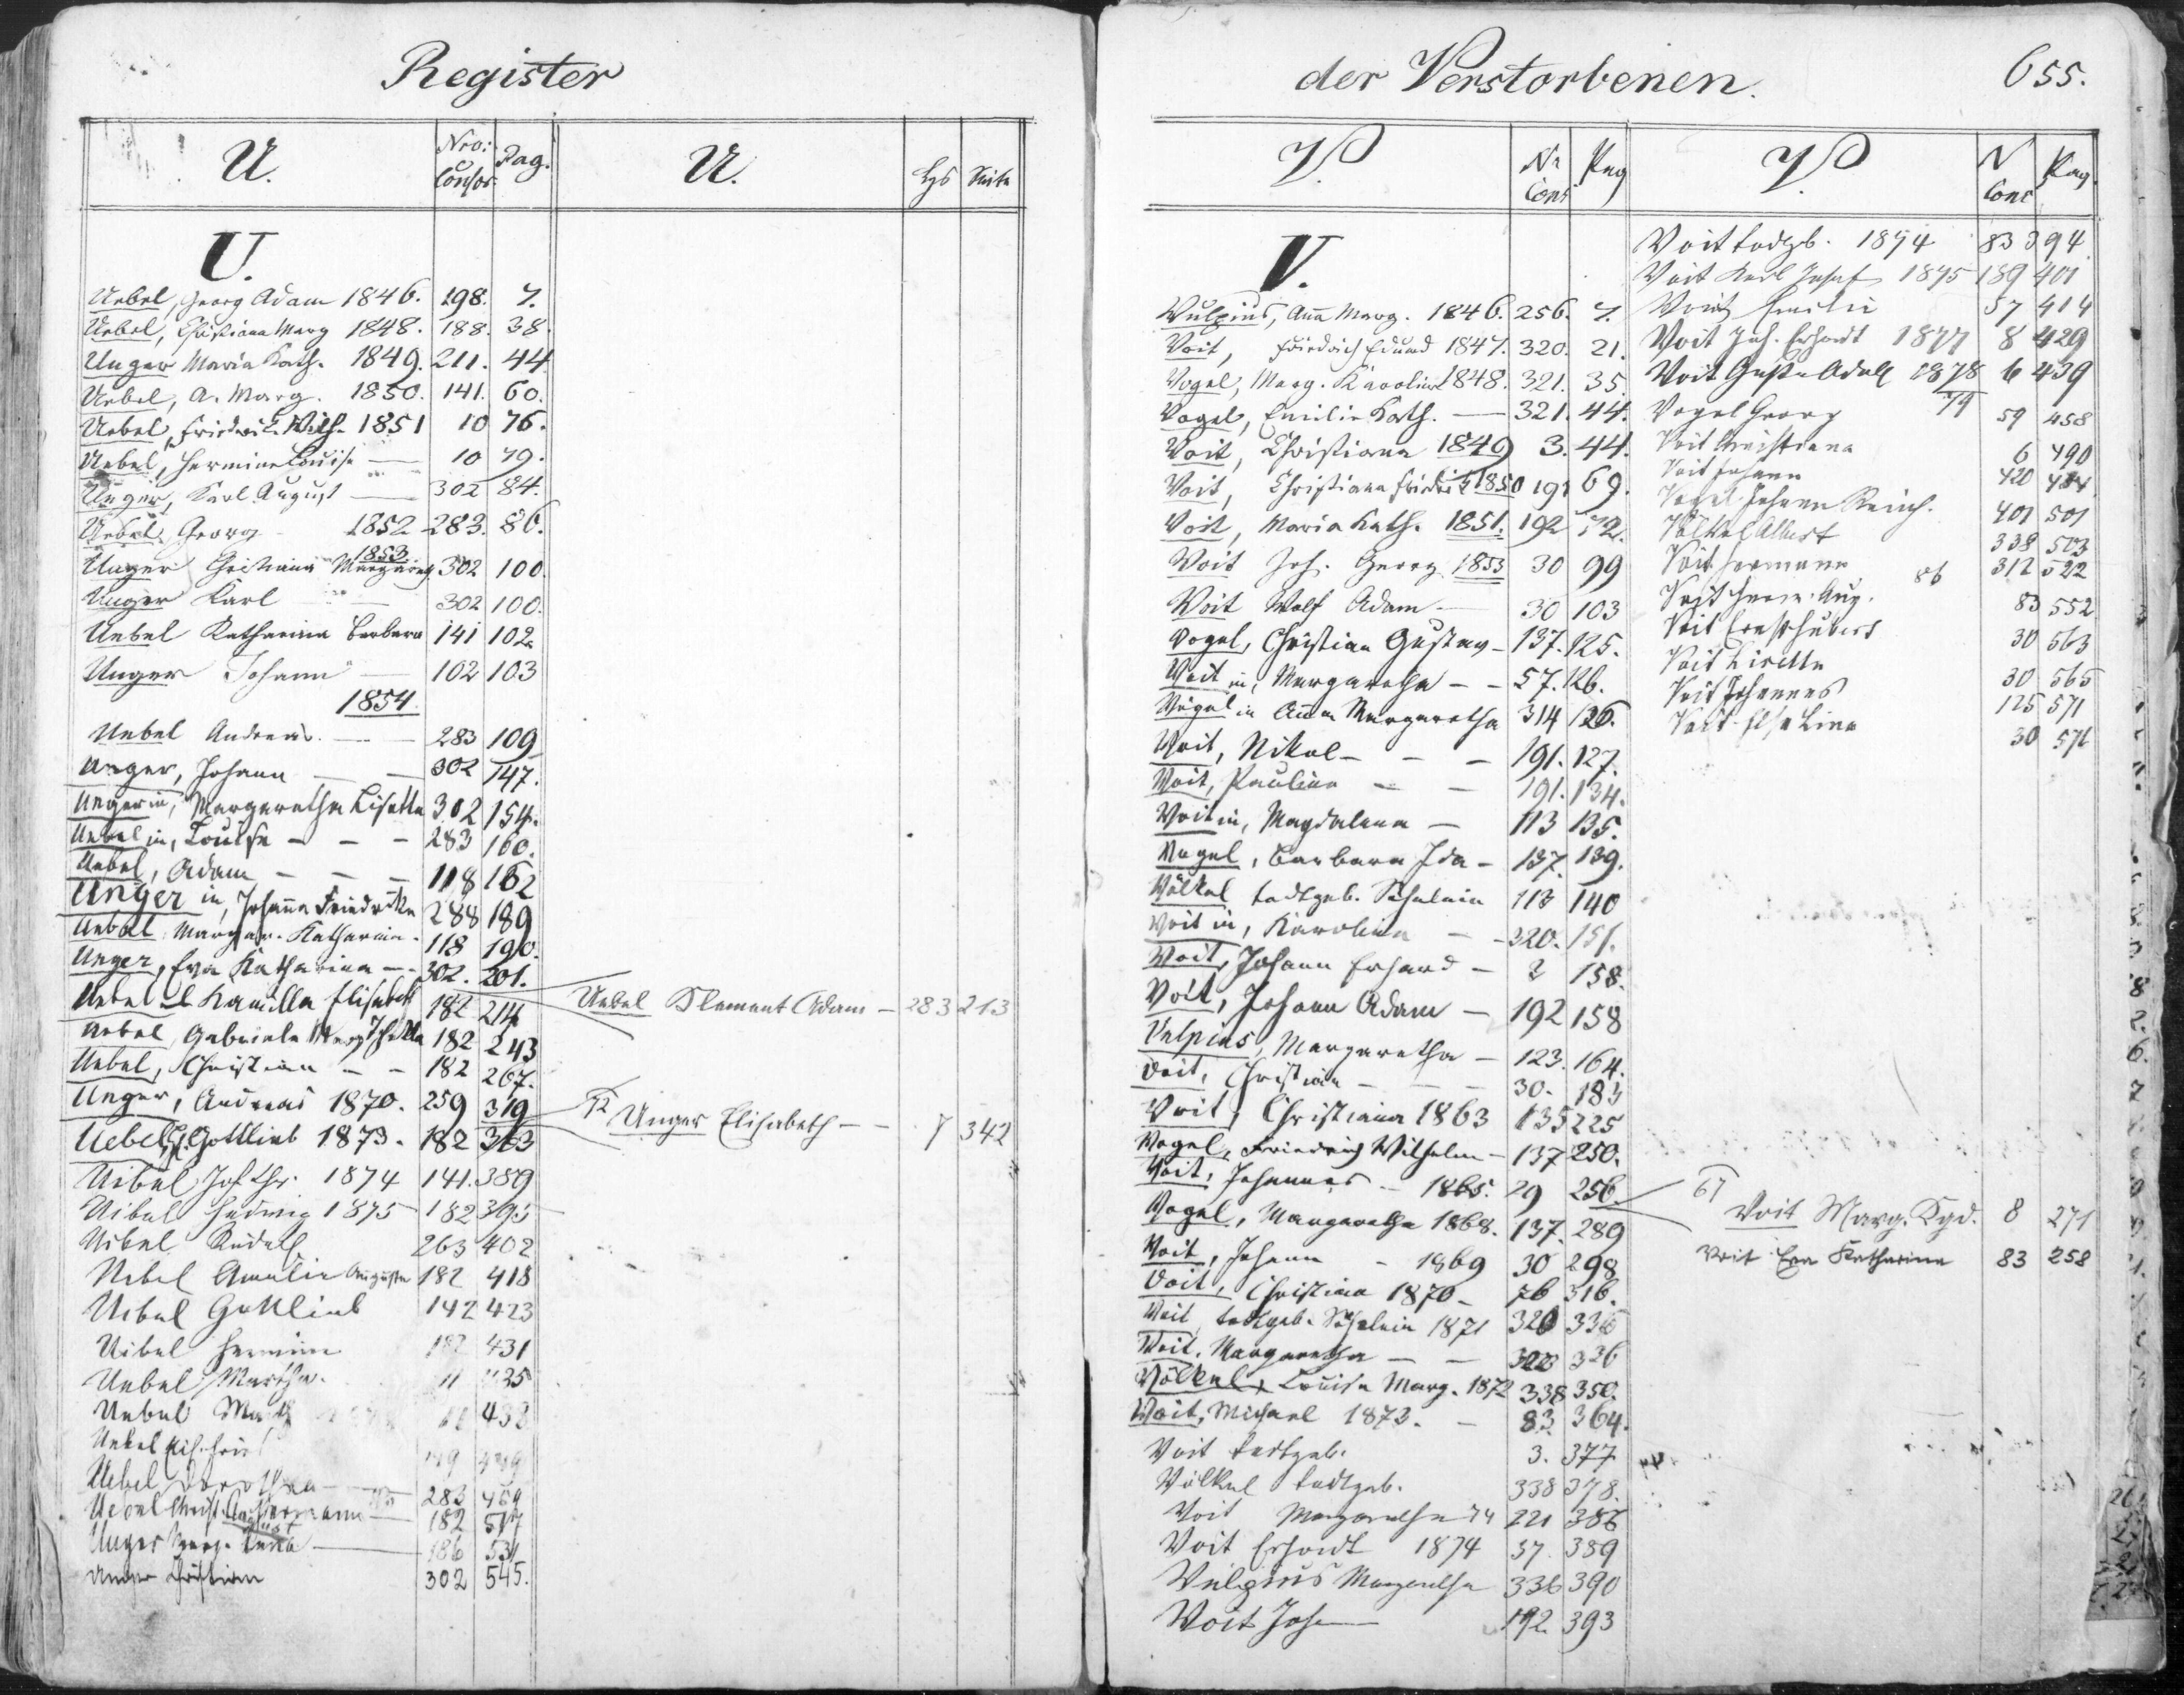 Register
U. Nro: Conscr. Pag.
U. Hs Seite
U.
Uebel, Georg Adam 1846. 298. 7.
Uebel, Christiana Marg 1848. 188. 38.
Unger Maria Kath. 1849. 211. 44
Uebel, A. Marg. 1850. 141. 60.
Uebel, Friedrich Wilh. 1851 10 76.
Uebel, Hermine Louise — 10 79.
Unger, Karl August — 302 84.
Uebel, Georg 1852 283. 86.
1853
Unger Christiana Margareth 302 100.
Unger Karl — 302 100.
Uebel Katharina Barbara 141 102.
Unger Johann — 102 103
1854.
Uebel Andreas. — 283 109
Unger, Johann — — 302 147.
Ungerin, Margaretha Lisetta 302 154.
Uebelin, Louise — — — 283 160.
Uebel, Adam — — — 118 162
Ungerin, Johanna Friedrike 288 189
Uebel Margar. Katharina. 118 190.
Unger, Eva Katharina — 302. 201.
Uebel Kamilla Elisabeth 182 214
Uebel Klement Adam — 283 213
Uebel, Gabriele Marg 182 243
Uebel, Christian — — 182 267.
Unger, Andreas 1870. 259 319
72 Unger Elisabeth — — 7 342
Uebel, Gottlieb 1873. 182 363
Uibel Joh. Chr. 1874 141. 389
Uibel Hedwig 1875 182 395
Uibel Rudolf 263 402
Uebel Amalie Augusta 182 418
Uebel Gottlieb 142 423
Uibel Hermine 182 431
Uebel Martha. 11 435
Uebel 438
Uebel
Uebel Dorothea — 283 469
Uebel Christ. August Hermann — 182 517
Unger Marg. — 186 531
Unger Christian 302 545.
der Verstorbenen. 655.
V. Nr Cons Pag
V. N Cons Pag.
V.
Vulpius, Anna Marg. 1846. 256. 7.
Voit, Friedrich Eduard 1847. 320. 21.
Vogel, Marg. Karolina 1848. 321. 35
Vogel, Emilie Kath. — 321. 44.
Voit, Christiana 1849 3. 44.
Voit, Christiana Friedrik 1850 191 69.
Voit, Maria Kath. 1851. 192 72.
Voit Joh. Georg 1853 30 99
Voit Wolf Adam — 30 103
Vogel, Christian Gustav — 137. 125.
Voitin, Margaretha — — 57. 126.
Vogelin Anna Margaretha 314 126.
Voit, Nikol — — — 191. 127.
Voit, Paulina — — 191. 134.
Voitin, Magdalena — 113 135.
Vogel, Barbara Ida — 137. 139.
Völkel todtgeb. Söhnlein 113 140
Voitin, Karolina — — 320. 151.
Voit, Johann Erhard — 2 158.
Voit, Johann Adam — 192 158
Vulpius, Margaretha — 123. 164.
Voit, Christian — — — 30. 183
Voit, Christiana 1863 135 225
Vogel, Friedrich Wilhelm — 137 250.
Voit, Johannes — 1865. 29 256
Vogel, Margaretha 1868. 137. 289
Voit, Johann — 1869 30 298
Voit, Christian 1870 — 76 316.
Voit, todtgeb. Söhnlein 1871 320 336
Voit, Margaretha — — 320 336
Völkel, Louise Marg. 1872 338 350.
Voit, Michael 1873. — 83. 364.
Voit todtgeb. 3. 377
Völkel todtgeb. 338 378.
Voit Margaretha 74 221 386
Voit Erhardt 1874 37. 389
Vulpius Margaretha 336 390
Voit Joh 192. 393
Voit todtgb. 1874 83 394.
Voit Karl Josef 1875 189 401
Voit Emilie 57 414
Voit Joh. Erhardt 1877 8 429
Voit Gust. Adolf 1878 6 439
Vogel Georg 79 59 458
Voit Christiana 6 490
Voit Johann 420 484
Vogel Johann Heinr. 401 501
Völkel Albert 338 503
Voit Hermann 312 522
Voit Herm. Aug. 86 83 552
Voit Ernst Hubert 30 563
Voit Lisette 30 565
Voit Johannes 125 571
Voit Elsa Lina 30 571
67
Voit Marg. Kgd. 8 271
Voit Eva Katharina 83 258